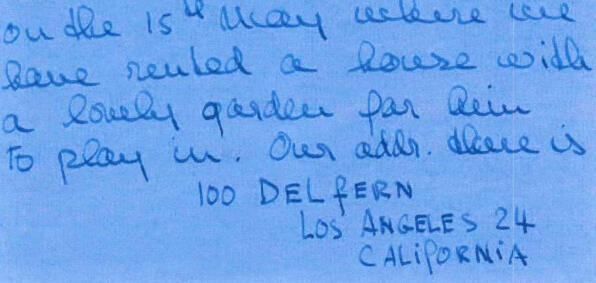 on the 15th May where we
have rented a house with
a lovely garden for him
to play in. Our addr. there is
100 DELFERN
LOS ANGELES 24
CALIFORNIA